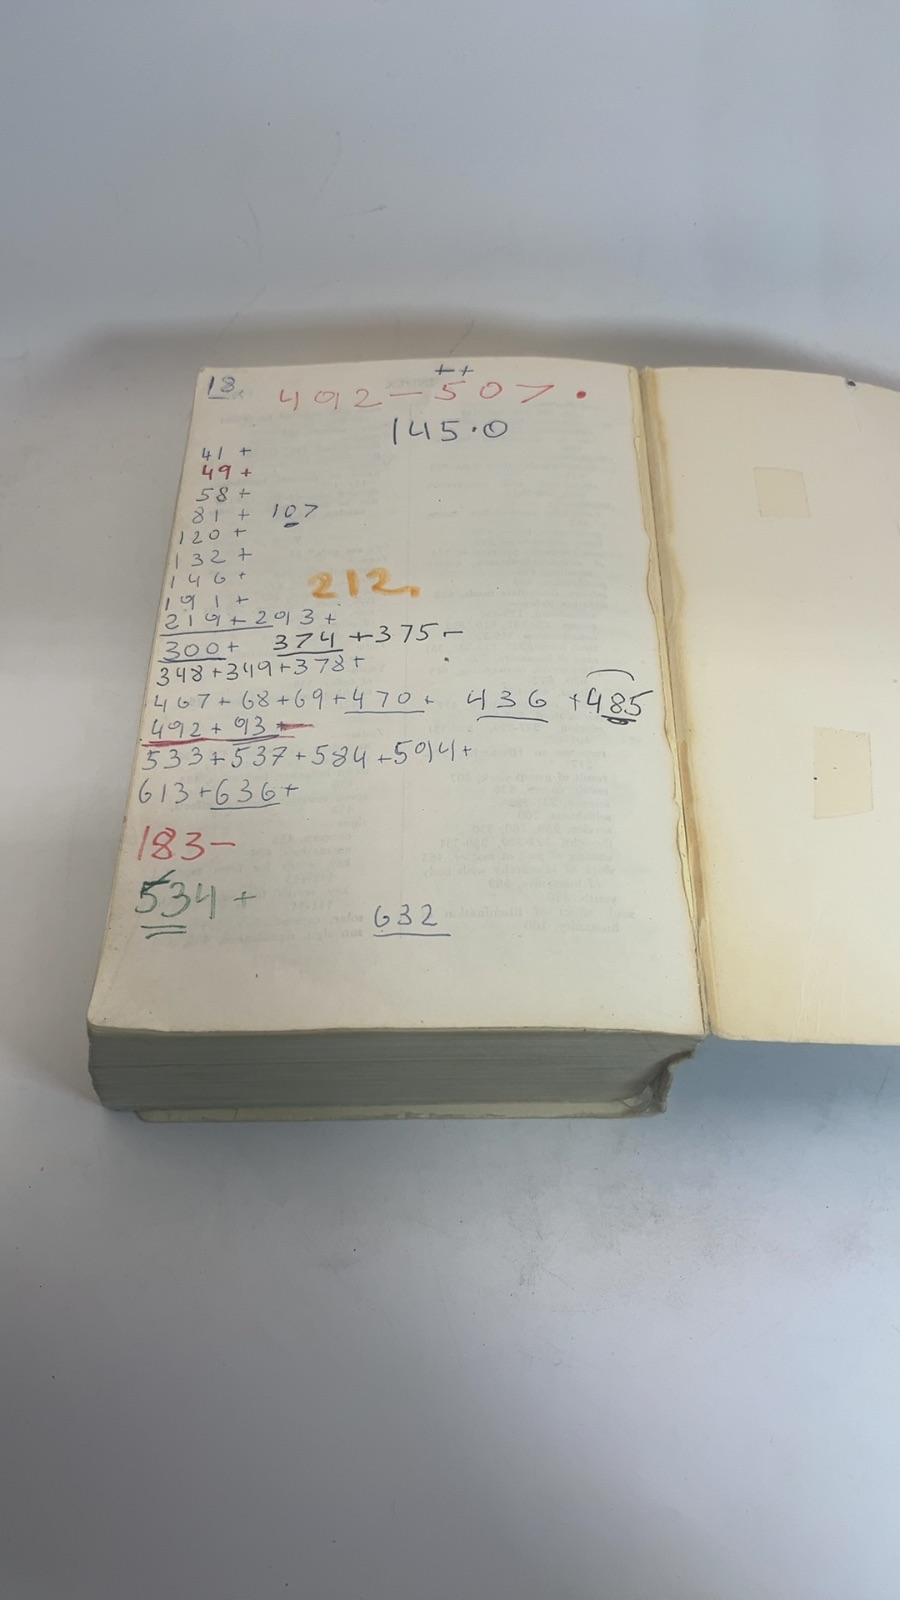 18.
++
492-507.
145.0
41 +
49 +
58 +
81 + 107
120 +
132 +
146 +
191 +
212.
219 + 293 +
300 + 374 + 375 -
348 + 349 + 378 +
467 + 68 + 69 + 470 + 436 + 485
492 + 93 +
533 + 537 + 584 + 594 +
613 + 636 +
183 -
534 +
632